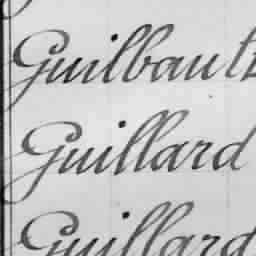 Guilbault
Guillard
Guillard